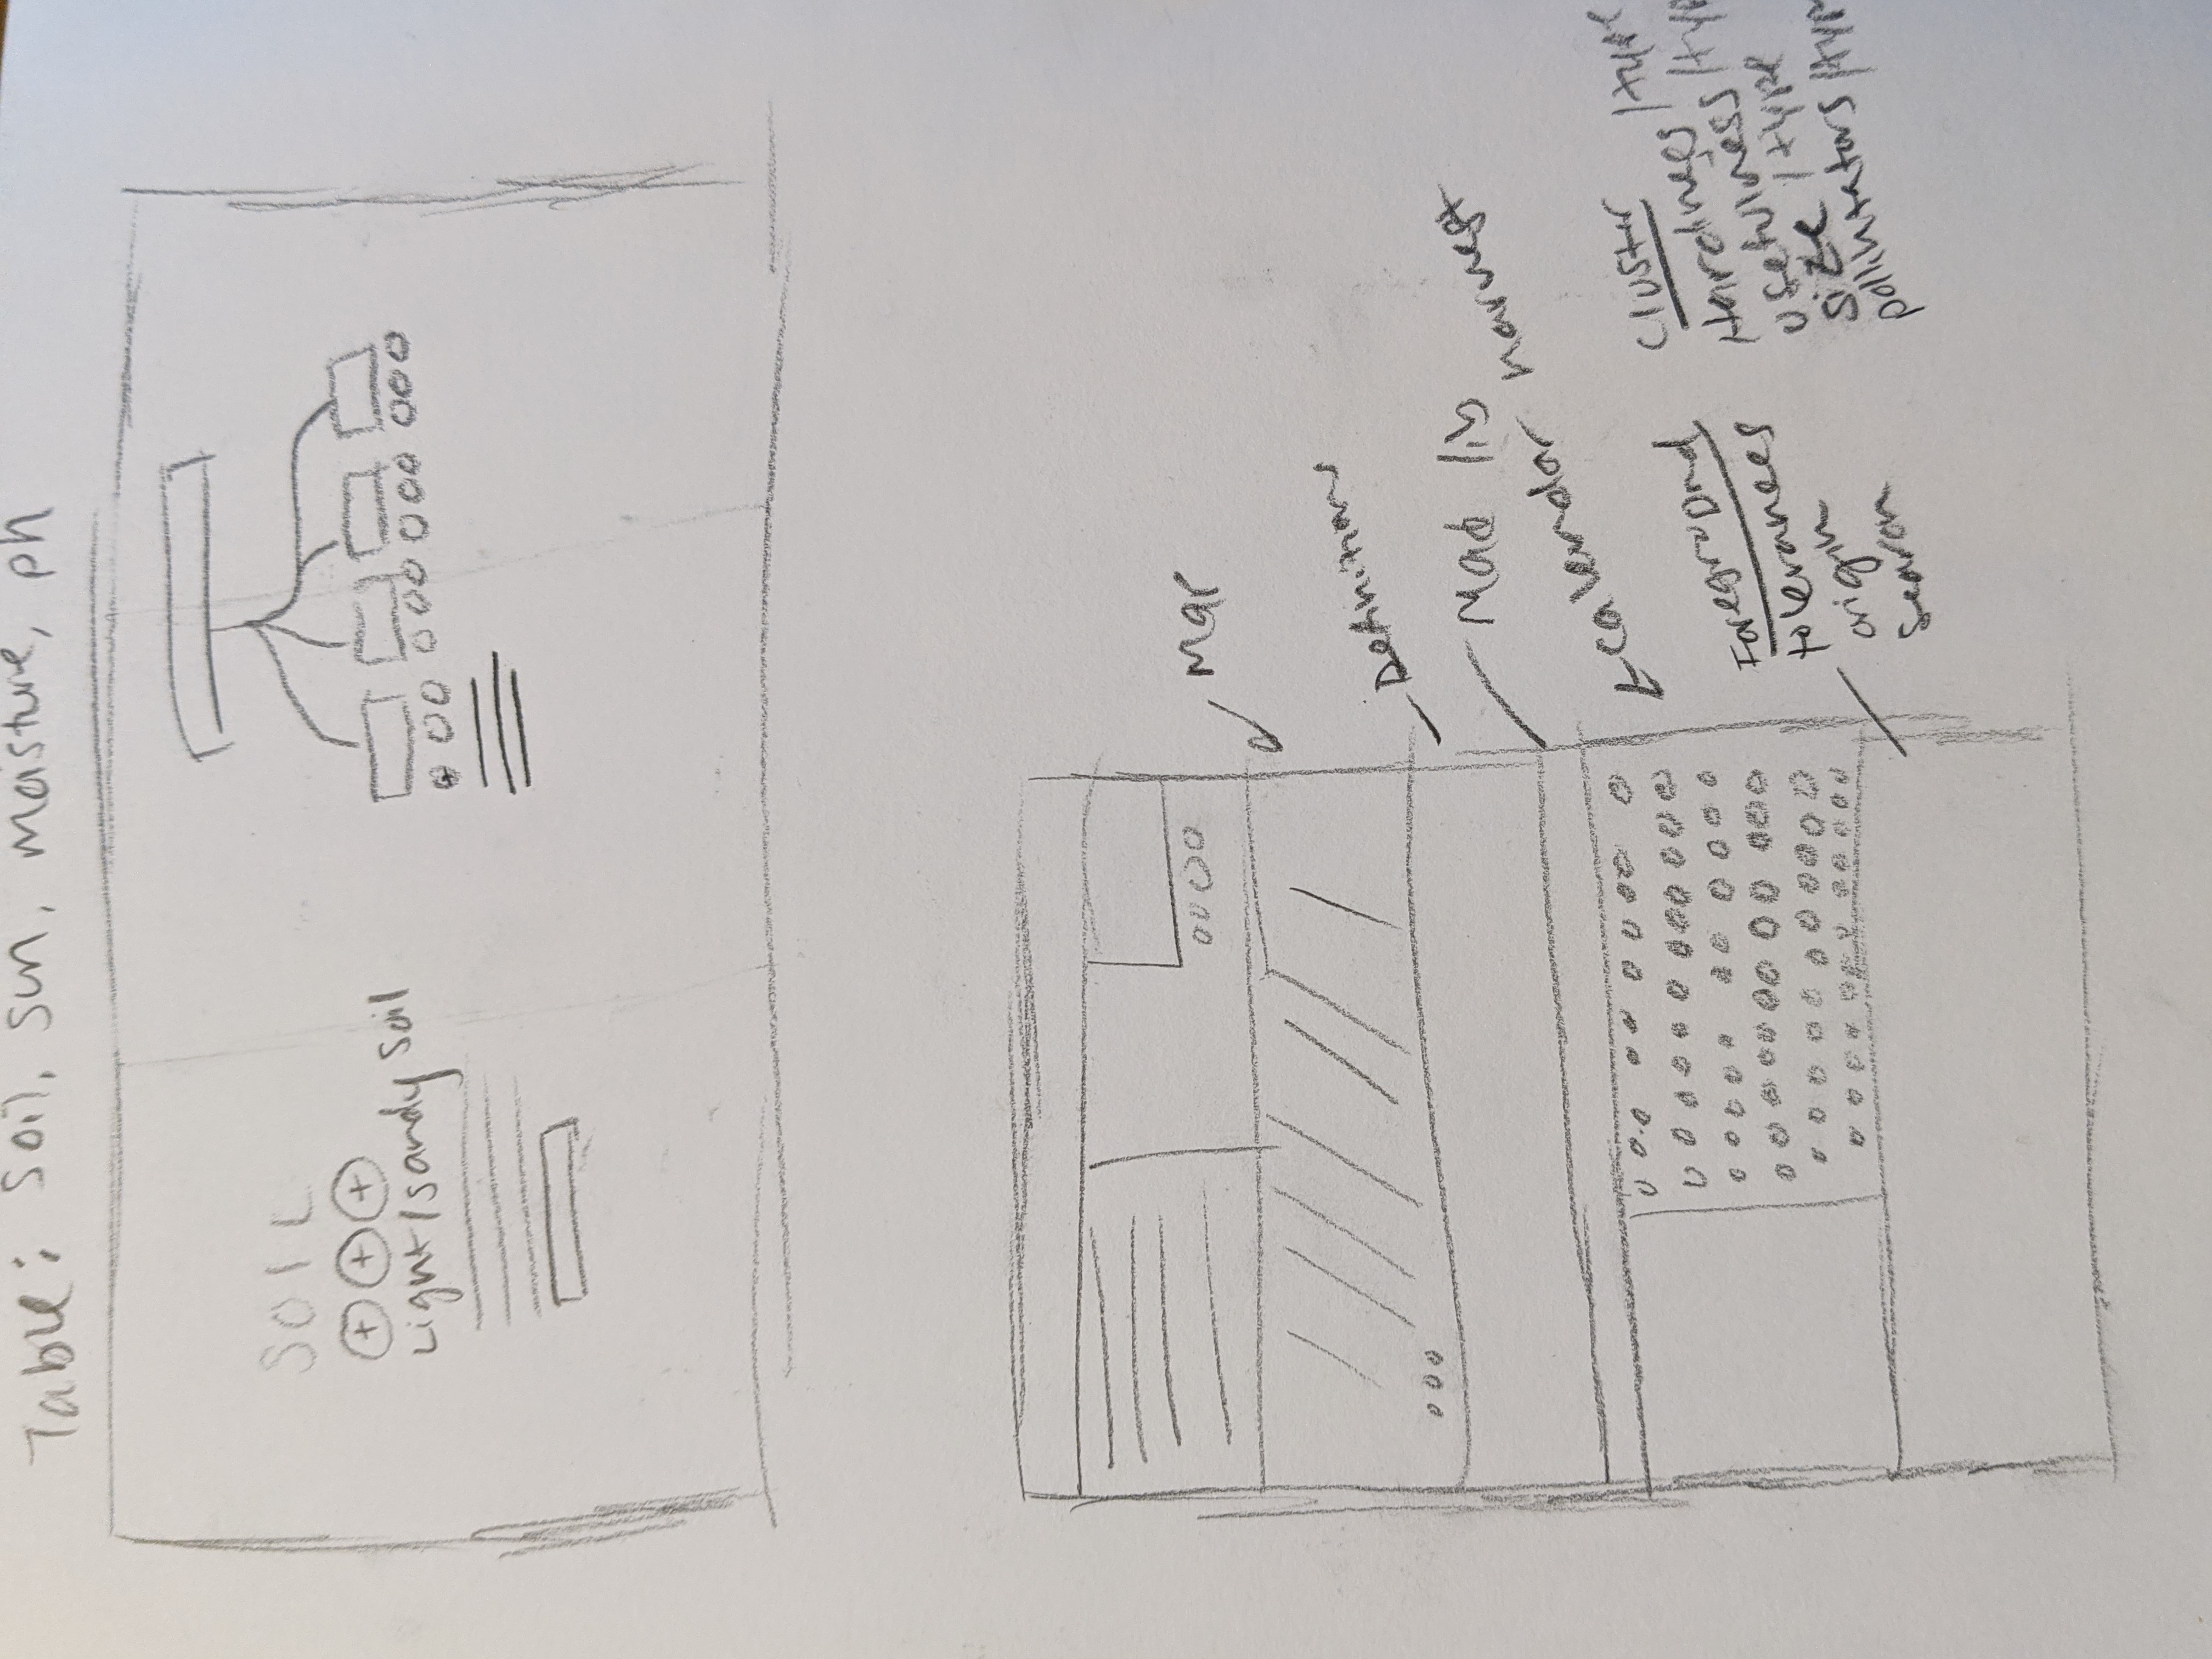 Table: Soil, sun, moisture, ph
SOIL
Light/sandy soil
Map
Definitions
Mad lib
Calendar harvest
Foreground
tolerances
origin
Search
Cluster
Hardiness/type
usefulness/typ
size/type
pollinators/typ